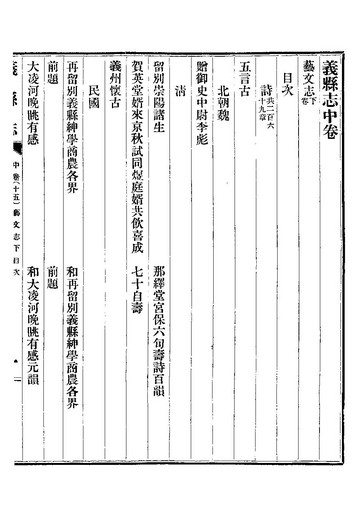 義縣志中卷
藝文志下卷
目次
詩共二百六十九章
五言古
北朝魏
贈御史中尉李彪
清
留別崇陽諸生
那繹堂宮保六旬壽詩百韻
賀英堂婿來京秋試同煜庭婿共飲喜成
七十自壽
義州懷古
民國
再留別義縣紳學商農各界
和再留別義縣紳學商農各界
前題
前題
大凌河晚眺有感
和大凌河晚眺有感元韻
義縣志
中卷(十五)藝文志下目次
一